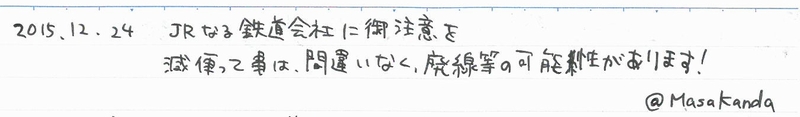 2015.12.24 JRなる鉄道会社に御注意を
減便って事は、間違いなく、廃線等の可能性があります!
@Masakanda